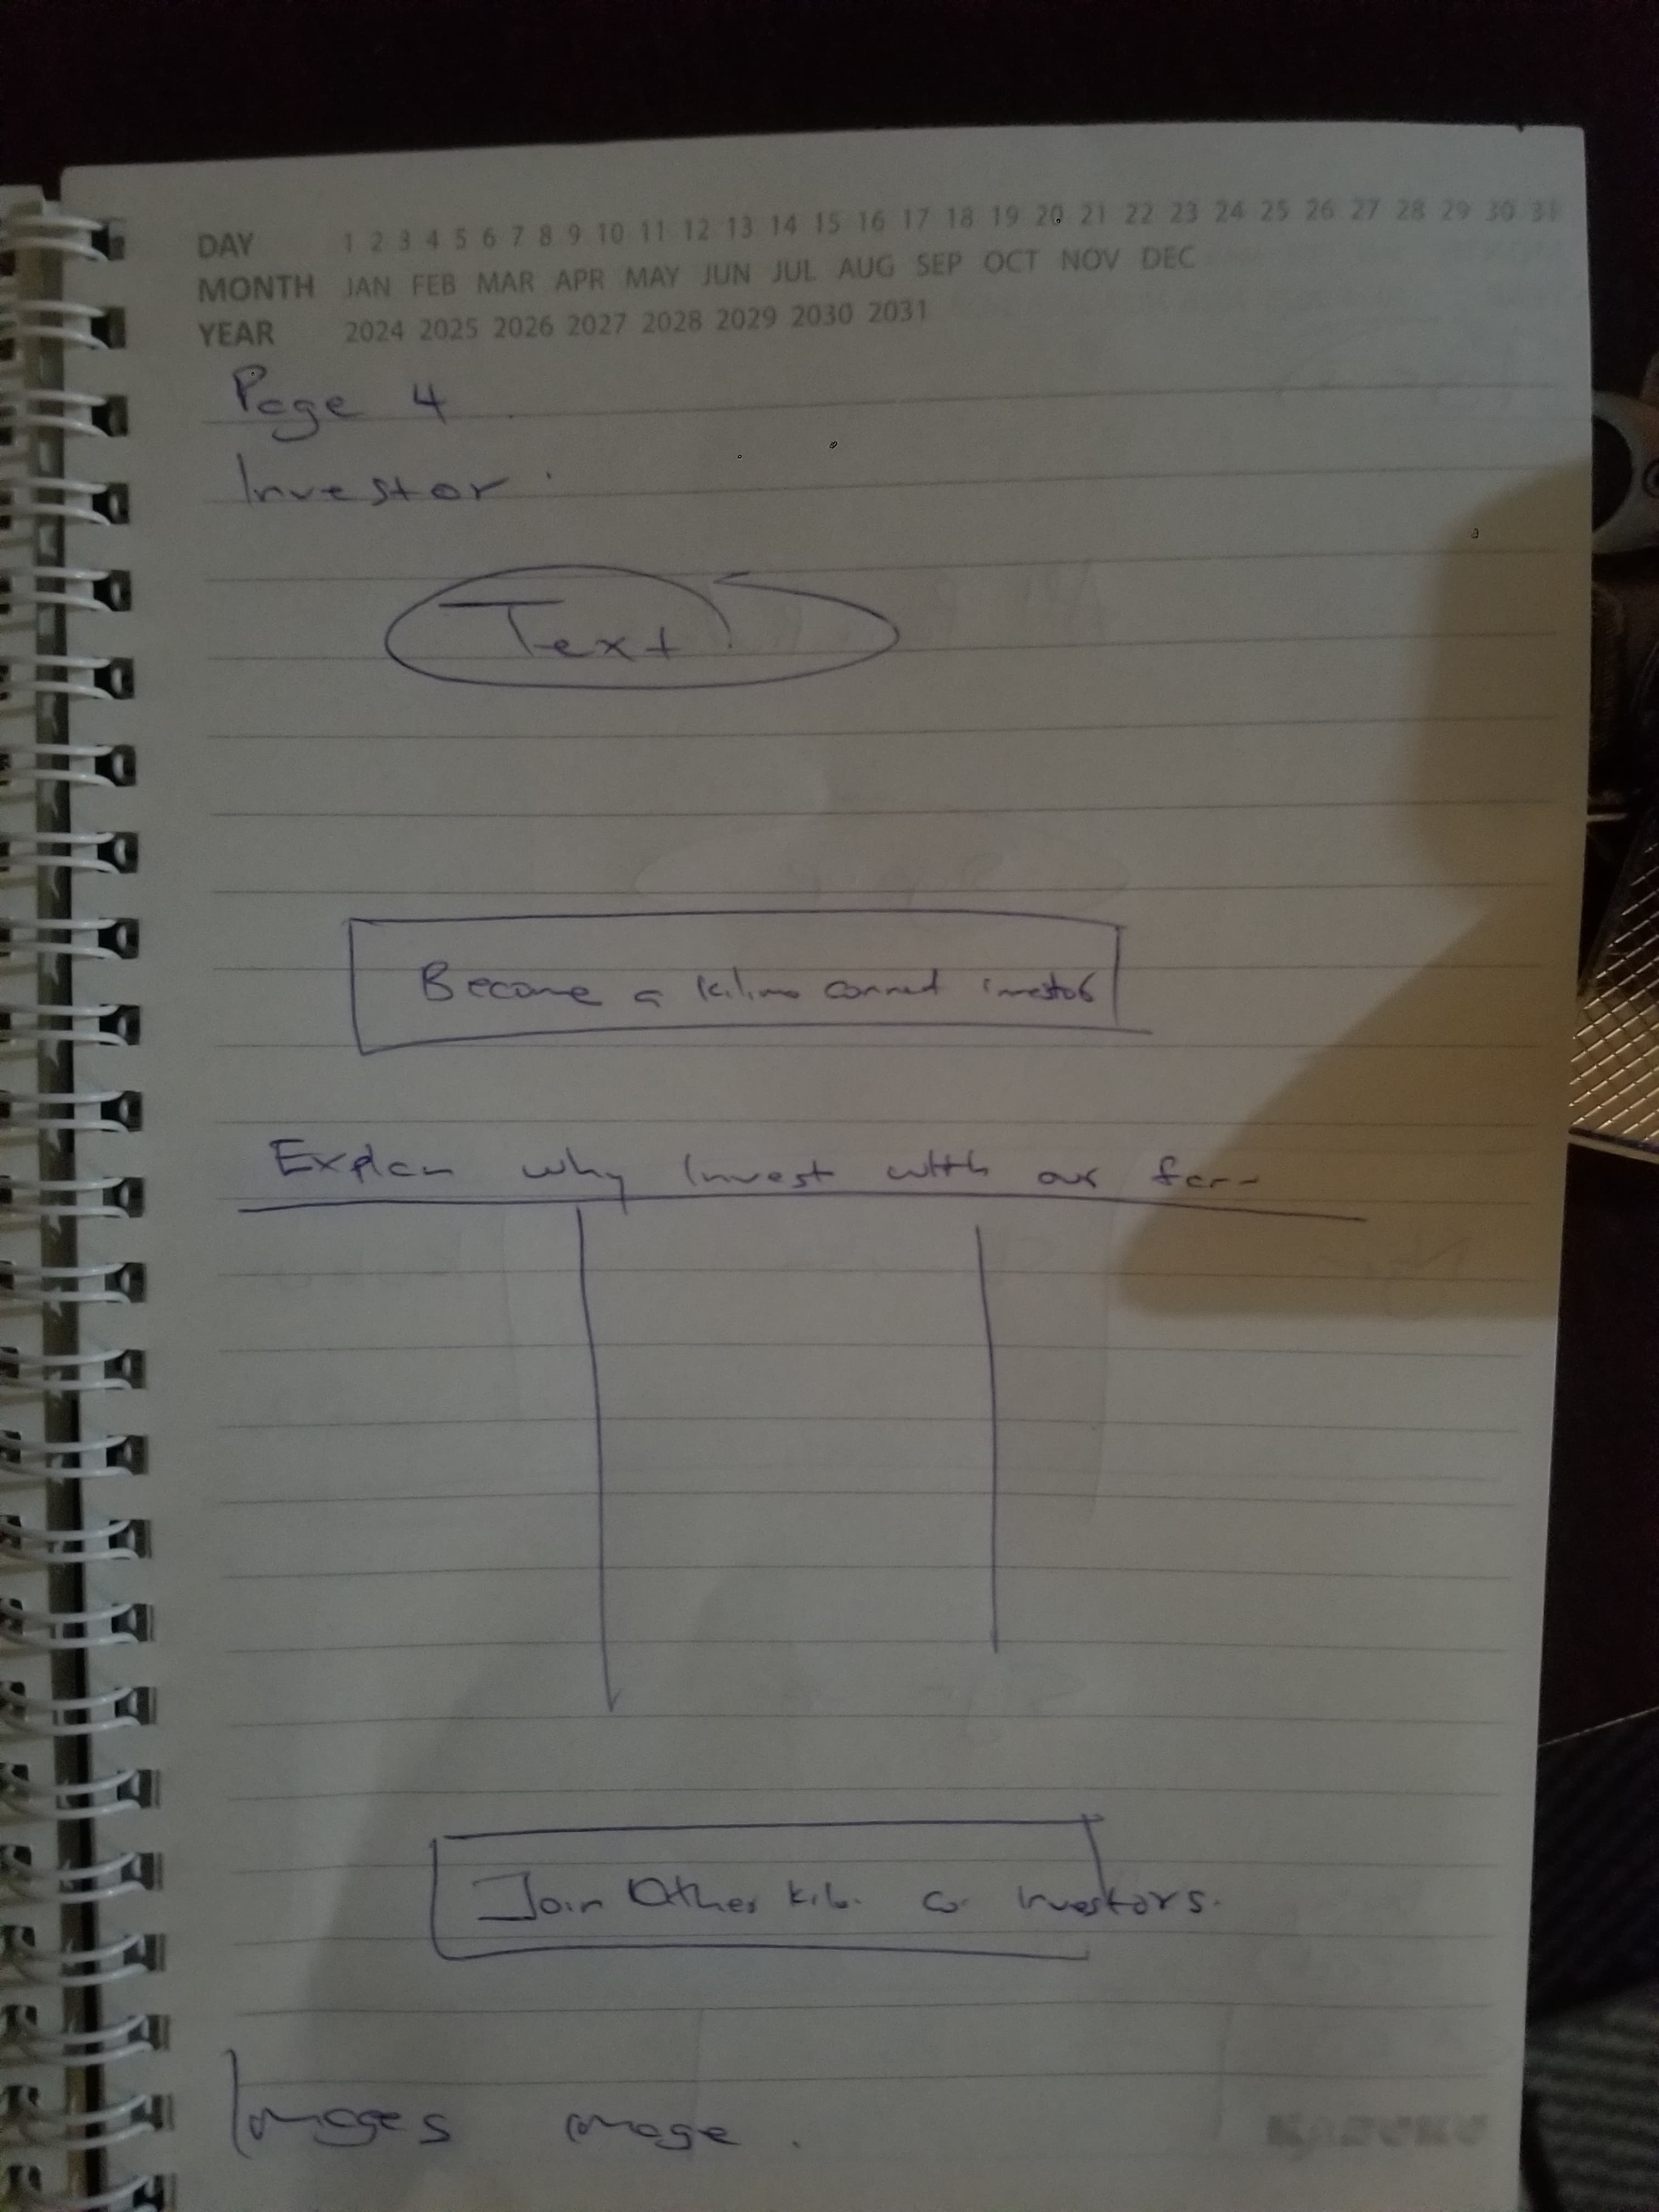 DAY 1 2 3 4 5 6 7 8 9 10 11 12 13 14 15 16 17 18 19 20 21 22 23 24 25 26 27 28 29 30 31
MONTH JAN FEB MAR APR MAY JUN JUL AUG SEP OCT NOV DEC
YEAR 2024 2025 2026 2027 2028 2029 2030 2031
Page 4
Investor
Text
Become a kilimo connect investor
Explain why Invest with our
Join Other Kili. Co. Investors.
Images image.